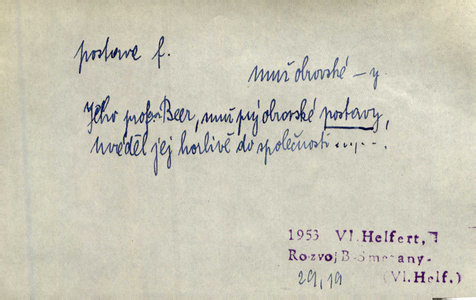 postava f.
muž obrovské – y
Jeho prof. Beer, muž prý obrovské postavy,
uváděl jej horlivě do společnosti .....
1953 Vl. Helfert,
Rozvoj B. Smetany-
29,19 (Vl. Helf.)